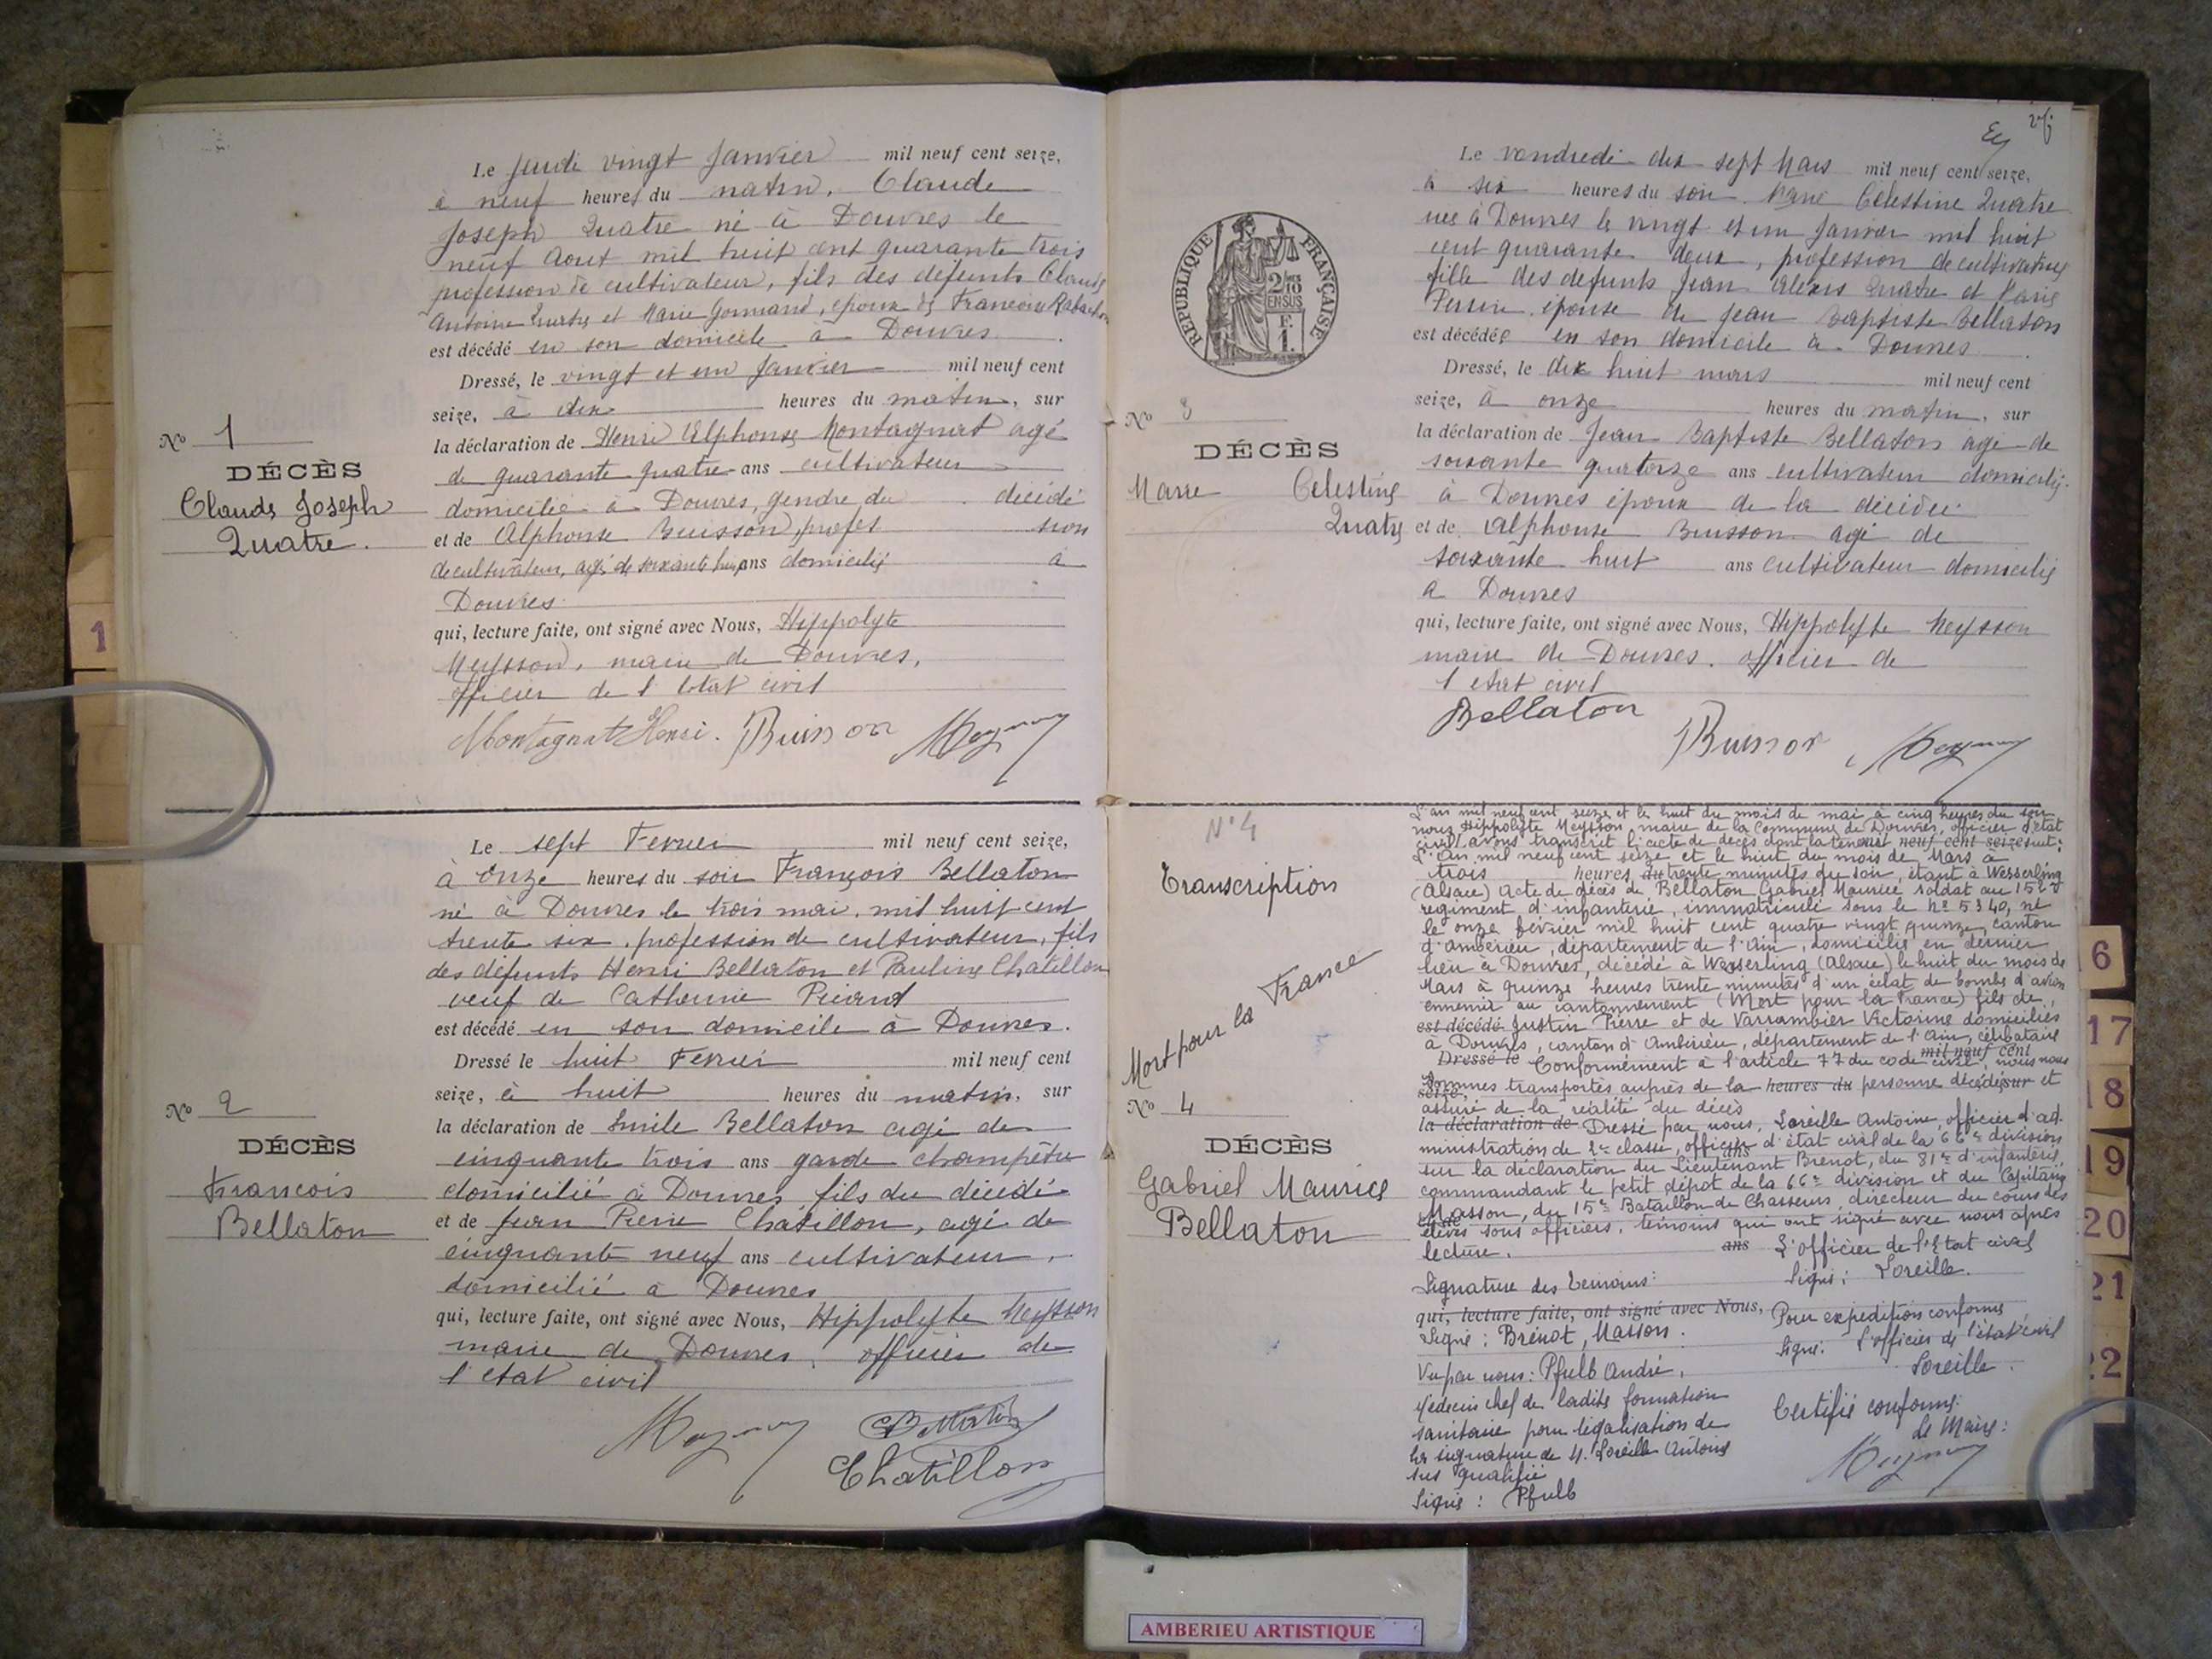 Le jeudi vingt Janvier mil neuf cent seize,
à neuf heures du matin, Claude
Joseph Quatre né à Douvres le
neuf Aout mil huit cent quarante trois
profession de cultivateur, fils des défunts Claude
Antoine Quatre et Marie Gormand, époux de
est décédé en son domicile à Douvres
Dressé, le vingt et un Janvier mil neuf cent
seize, à dix heures du matin, sur
la déclaration de Henri Alphonse Montagnat agé
de quarante quatre ans cultivateur
domicilié à Douvres, gendre du décédé
et de Alphonse Buisson, profes sion
de cultivateur, agé de soixante huit ans domicilié à
Douvres
qui, lecture faite, ont signé avec Nous, Hippolyte
Meysson, maire de Douvres,
officier de l'état civil
Montagnat Henri. Buisson
No 1
DÉCÈS
Claude Joseph
Quatre.
1
Le sept Fevrier mil neuf cent seize,
à onze heures du soir François Bellaton
né à Douvres le trois mai, mil huit cent
trente six, profession de cultivateur, fils
des défunts Henri Bellaton et Pauline Chatillon
veuf de Catherine
est décédé en son domicile à Douvres.
Dressé le huit Fevrier mil neuf cent
seize, à huit heures du matin, sur
la déclaration de Emile Bellaton agé de
cinquante trois ans garde champêtre
domicilié à Douvres fils du décédé
et de Jean Pierre Chatillon, agé de
cinquante neuf ans cultivateur,
domicilié à Douvres
qui, lecture faite, ont signé avec Nous, Hippolyte Meysson
maire de Douvres, officier de
l'état civil
Chatillon
No 2
DÉCÈS
Francois
Bellaton
Le vendredi dix sept Mars mil neuf cent seize,
à six heures du soir Marie Celestine Quatre
née à Douvres le vingt et un Janvier mil huit
cent quarante deux, profession de cultivatrice
fille des defunts Jean Alexis Quatre et Marie
Perrin épouse de Jean Baptiste Bellaton
est décédée en son domicile à Douvres
Dressé, le dix huit mars mil neuf cent
seize, à onze heures du matin, sur
la déclaration de Jean Baptiste Bellaton agé de
soixante quatorze ans cultivateur domicilié
à Douvres époux de la décédée
et de Alphonse Buisson agé de
soixante huit ans cultivateur domicilié
à Douvres
qui, lecture faite, ont signé avec Nous, Hippolyte Meysson
maire de Douvres. officier de
l'état civil
Bellaton
Buisson
REPUBLIQUE FRANÇAISE
2/10
EN SUS
No 3
DÉCÈS
Marie Celestine
Quatre
N°4
Transcription
Mort pour la France
No 4
DÉCÈS
Gabriel Maurice
Bellaton
L'an mil neuf cent seize et le huit du mois de mai à cinq heures du soir
nous Hippolyte Meysson, maire de la Commune de Douvres, officier d'état
civil, avons transcrit l'acte de décès dont la teneur mil neuf cent seize suit:
L'an mil neuf cent seize et le huit du mois de Mars à
trois heures du trente minutes du soir, étant à Wesserling
(Alsace) Acte de décès de Bellaton Gabriel Maurice soldat au 152e
regiment d'infanterie, immatriculé sous le no 5340, né
le onze février mil huit cent quatre vingt quinze, canton
d'Ambérieu, département de l'Ain, domicilié en dernier
lieu à Douvres, décédé à Wesserling (Alsace) le huit du mois de
Mars à quinze heures trente minutes d'un éclat de bombe d'avion
ennemie au cantonnement (Mort pour la France) fils de,
est décédé Justin Pierre et de Varrambier Victorine domiciliés
à Douvres, canton d'Ambérieu, département de l'Ain, célibataire
Dressé le Conformément à l'article 77 du code civil, mil neuf cent nous nous
seize, sommes transportés auprès de la heures du personne décédée sur et
assuré de la réalité du décès
la déclaration de Dressé par nous, Loreille Antoine, officier d'ad-
ministration de 2e classe, officier d'état civil de la 66e division
ans sur la déclaration du Lieutenant Brenot, du 81e d'infanterie,
commandant le petit dépot de la 66e division et du Capitaine
et de Masson, du 15e Bataillon de Chasseurs, directeur du cours des
élèves sous officiers, témoins qui ont signé avec nous après
lecture. ans L'officier de l'Etat civil
Signature des temoins: Signé: Loreille.
qui, lecture faite, ont signé avec Nous, Pour expedition conforme
Signé: Brenot, Masson. Signé: L'officier de l'état civil
Loreille.
Vu par nous: Pfulb André,
Médecin chef de ladite formation
sanitaire pour légalisation de
la signature de M. Loreille Antoine
sus qualifié
Signé: Pfulb
Certifié conforme:
Le Maire:
6
17
18
19
20
21
22
AMBERIEU ARTISTIQUE